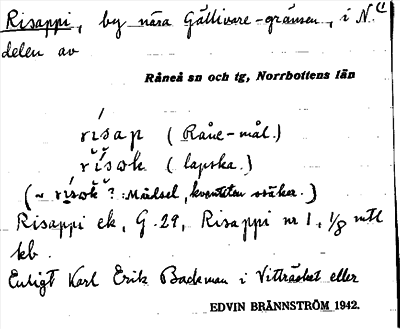 Risappi, by nära Gällivare-gränsen, i N.
delen av
Råneå sn och tg, Norrbottens län
rísap (Råne-mål.)
(lapska.)
Risappi ek, G. 29, Risappi nr 1, 1/8 mtl
kb.
Enligt Karl Erik Backman i Vitträsket eller
EDVIN BRÄNNSTRÖM 1942.